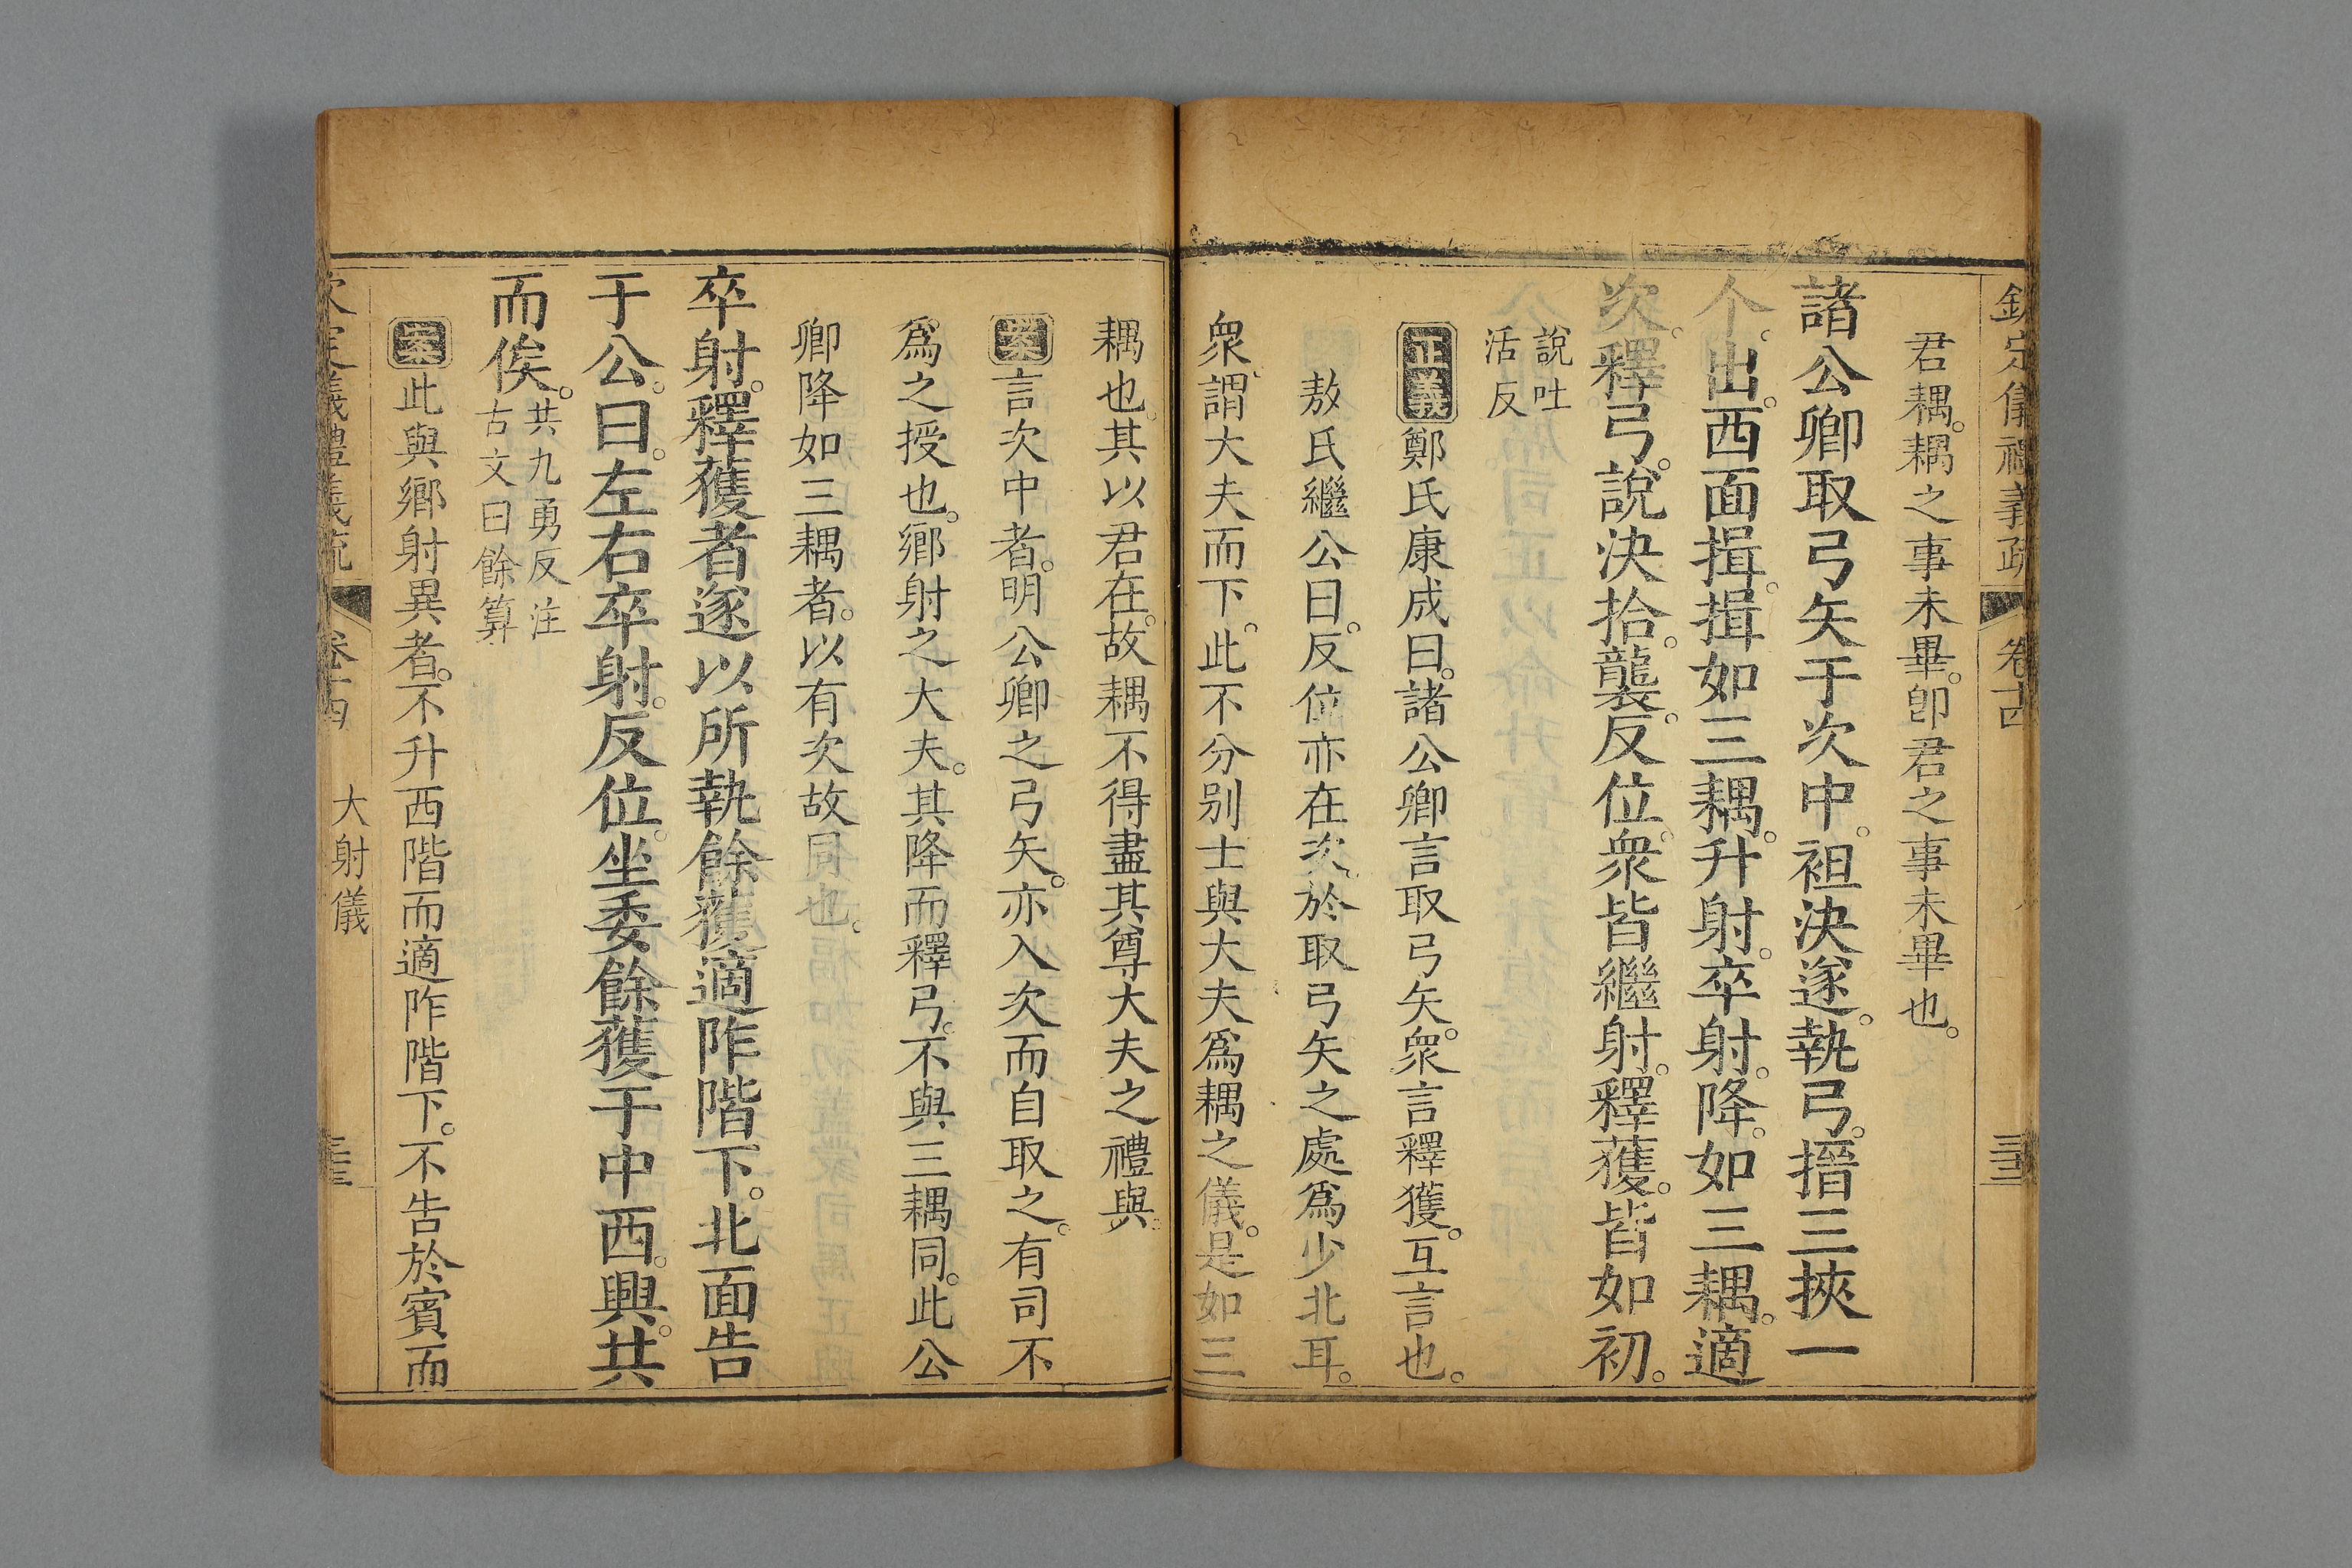 欽定儀禮義疏 卷十四 三三
君耦。耦之事未畢。卽君之事未畢也。
諸公卿取弓矢于次中。袒決遂。執弓。搢三挾一
个。出。西面揖。揖如三耦。升射。卒射。降。如三耦。適
次。釋弓。說決拾。襲。反位。衆皆繼射。釋獲。皆如初。
說吐
活反
正義鄭氏康成曰。諸公卿言取弓矢。衆言釋獲。互言也。
敖氏繼公曰。反位亦在次。於取弓矢之處爲少北耳。
衆。謂大夫而下。此不分别士與大夫爲耦之儀。是如三
耦也。其以君在。故耦不得盡其尊大夫之禮與。
案言次中者。明公卿之弓矢。亦入次而自取之。有司不
爲之授也。鄉射之大夫。其降而釋弓。不與三耦同。此公
卿降如三耦者。以有次故同也。
卒射。釋獲者遂以所執餘獲適阼階下。北面告
于公。曰。左右卒射。反位。坐委餘獲于中西。興。共
而俟。
共九勇反注
古文曰餘算
案此與鄉射異者。不升西階而適阼階下。不告於賓而
欽定儀禮義疏 卷十四 大射儀 三三